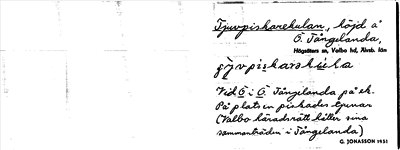 Tjuvpiskarekulan, höjd å
Ö. Tångelanda,
Högsäters sn, Valbo hd, Älvsb. län
Vid Ö i Ö Tångelanda på ek.
På platsen piskades tjuvar
(Valbo häradsrätt håller sina
sammanträden i Tångelanda)
G. JONASSON 1931